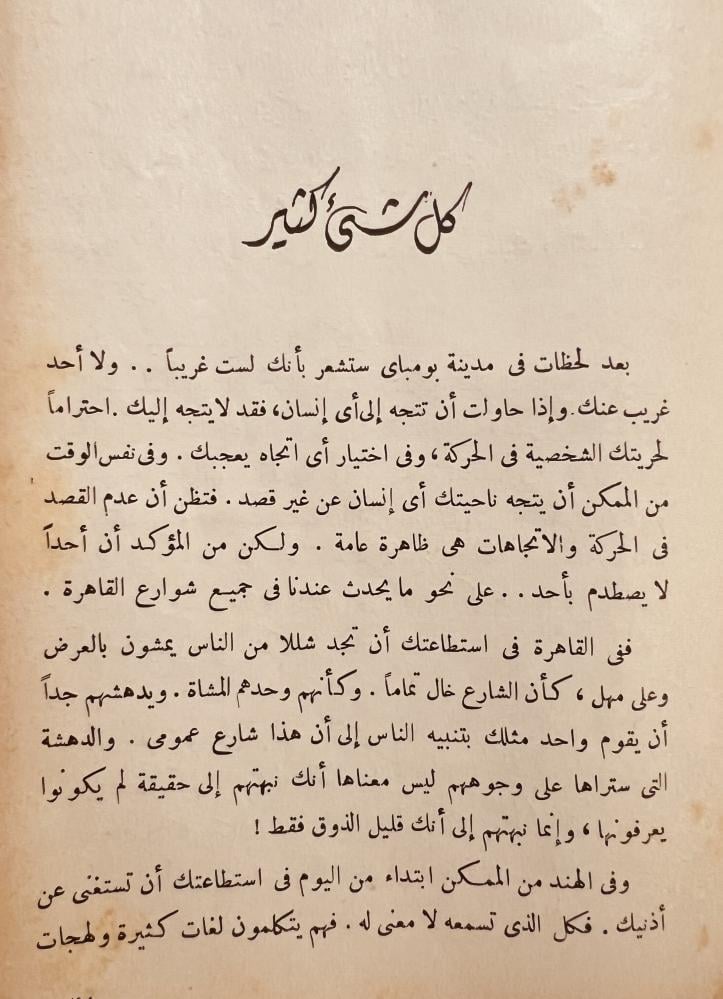 كل شئ كثير
بعد لحظات فى مدينة بومباى ستشعر بأنك لست غريباً .. ولا أحد
غريب عنك . وإذا حاولت أن تتجه إلى أى إنسان، فقد لايتجه إليك . احتراماً
لحريتك الشخصية فى الحركة، وفى اختيار أى اتجاه يعجبك . وفى نفس الوقت
من الممكن أن يتجه ناحيتك أى إنسان عن غير قصد . فتظن أن عدم القصد
فى الحركة والاتجاهات هى ظاهرة عامة . ولكن من المؤكد أن أحداً
لا يصطدم بأحد .. على نحو ما يحدث عندنا فى جميع شوارع القاهرة .
ففى القاهرة فى استطاعتك أن تجد شللا من الناس يمشون بالعرض
وعلى مهل، كأن الشارع خال تماماً . وكأنهم وحدهم المشاة . ويدهشهم جداً
أن يقوم واحد مثلك بتنبيه الناس إلى أن هذا شارع عمومى . والدهشة
التى ستراها على وجوههم ليس معناها أنك نبهتهم إلى حقيقة لم يكونوا
يعرفونها، وإنما نبهتهم إلى أنك قليل الذوق فقط !
وفى الهند من الممكن ابتداء من اليوم فى استطاعتك أن تستغنى عن
أذنيك . فكل الذى تسمعه لا معنى له . فهم يتكلمون لغات كثيرة ولهجات